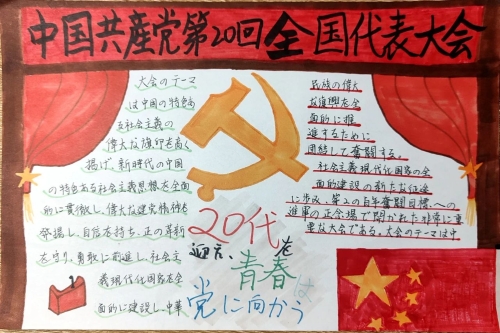 中国共産党第20回全国代表大会
大会のテーマ
は中国の特色ある
社会主義の
偉大な旗印を高く
揚げ、新時代の中国
の特色ある社会主義思想を全面
的に貫徹し、偉大な建党精神を
発揚し、自信を持ち、正の革新
を守り、勇敢に前進し、社会主
義現代化国家を全
面的に建設し、中華
民族の偉大
な復興を全
面的に推
進するために
団結して奮闘する。
社会主義現代化国家の全
面的建設の新たな征途
に歩み、第2の百年奮闘目標への
進軍の正念場で開かれた非常に重
要な大会である。大会のテーマは中
20代を
迎え、青春は
党に向かう